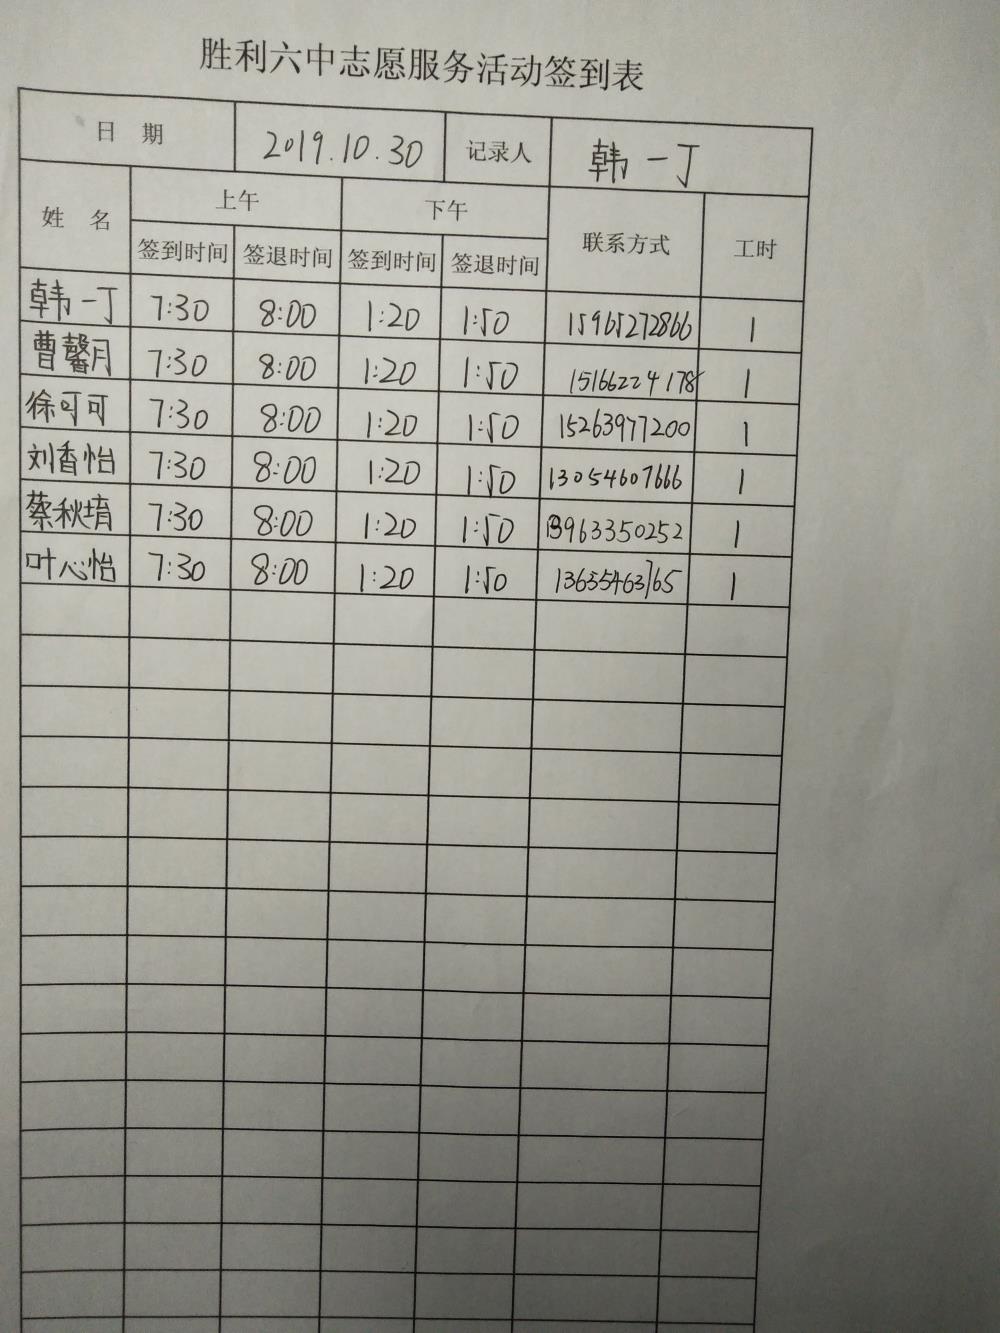 胜利六中志愿服务活动签到表
日 期 2019.10.30 记录人 韩一丁
姓 名 上午 下午 联系方式 工时
签到时间 签退时间 签到时间 签退时间
韩一丁 7:30 8:00 1:20 1:50 15965272866 1
曹馨月 7:30 8:00 1:20 1:50 15166224178 1
徐可可 7:30 8:00 1:20 1:50 15263977200 1
刘香怡 7:30 8:00 1:20 1:50 13054607666 1
蔡秋堉 7:30 8:00 1:20 1:50 13963350252 1
叶心怡 7:30 8:00 1:20 1:50 13655463765 1